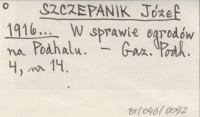 SZCZEPANIK Józef
1916... W sprawie ogrodów
na Podhalu. - Gaz. Podh.
4, nr 14.
BJ/048/0092